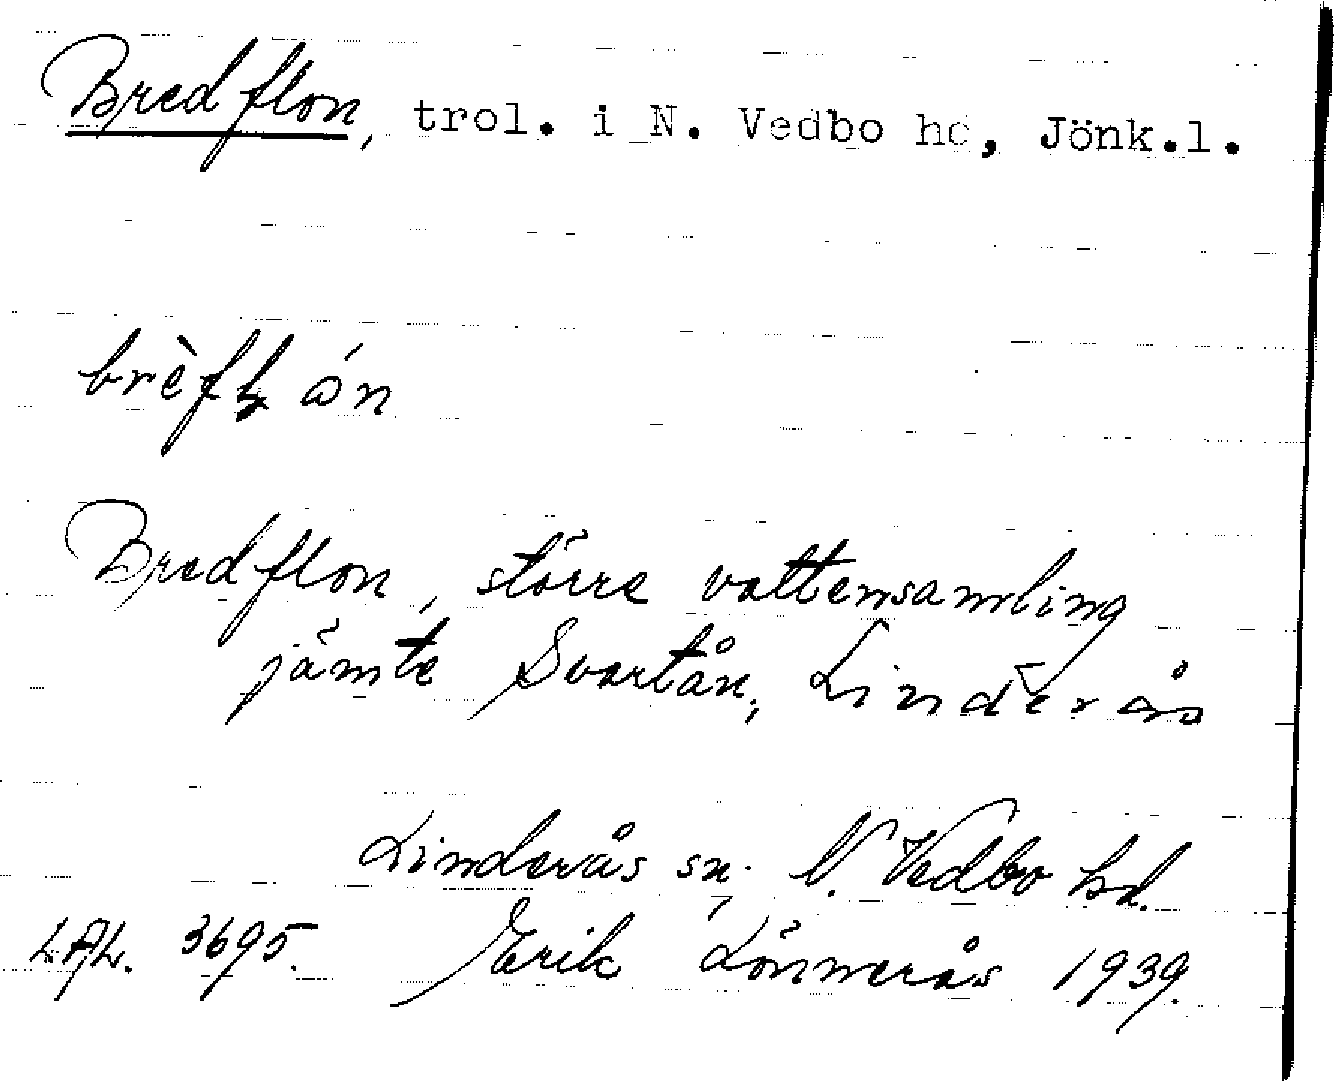 Bredflon, trol. i N. Vedbo hd, Jönk.l.
brèfḷ án
Bredflon, större vattensamling
jämte Svartån, Linderås
Linderås sn, N. Vedbo hd.
LAL. 3695. Erik Lönnerås 1939.